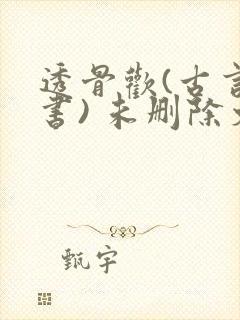 透骨歡(古言
書)未刪除
甄宇